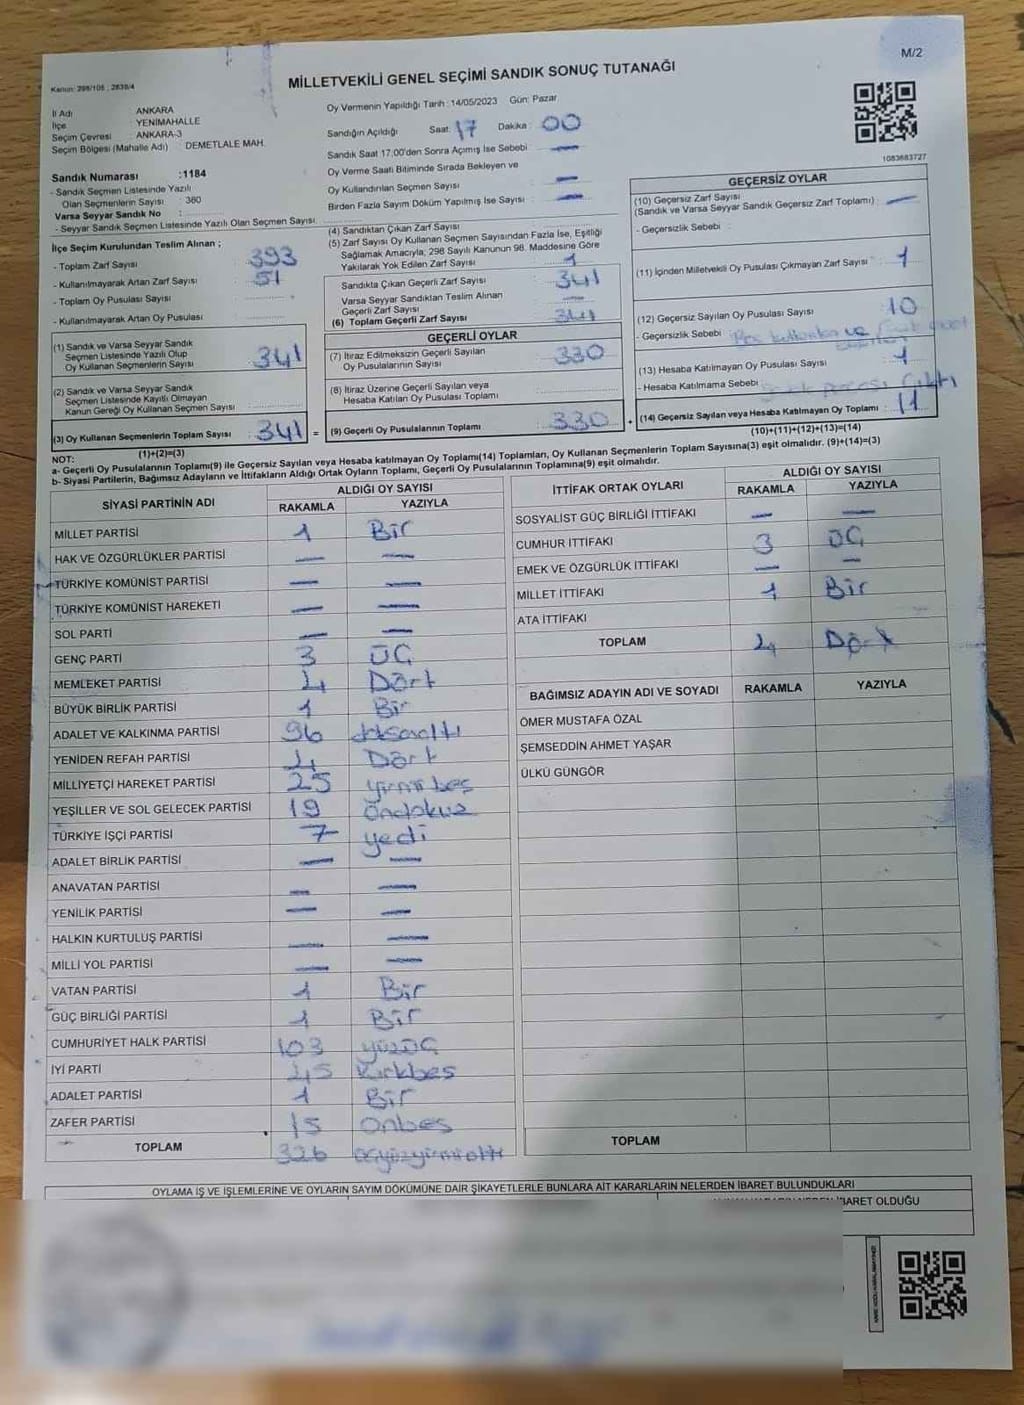 M/2
Kanun: 298/105 ; 2839/4
MİLLETVEKİLİ GENEL SEÇİMİ SANDIK SONUÇ TUTANAĞI
İl Adı : ANKARA
İlçe : YENİMAHALLE
Seçim Çevresi : ANKARA-3
Seçim Bölgesi (Mahalle Adı) DEMETLALE MAH.
Sandık Numarası :1184
- Sandık Seçmen Listesinde Yazılı
Olan Seçmenlerin Sayısı : 360
Varsa Seyyar Sandık No :
- Seyyar Sandık Seçmen Listesinde Yazılı Olan Seçmen Sayısı.
Oy Vermenin Yapıldığı Tarih : 14/05/2023 Gün: Pazar
Sandığın Açıldığı Saat: 17 Dakika : 00
Sandık Saat 17:00'den Sonra Açımış İse Sebebi —
Oy Verme Saati Bitiminde Sırada Bekleyen ve
Oy Kullandırılan Seçmen Sayısı —
Birden Fazla Sayım Döküm Yapılmış İse Sayısı —
1083683727
İlçe Seçim Kurulundan Teslim Alınan ;
- Toplam Zarf Sayısı : 393
- Kullanılmayarak Artan Zarf Sayısı : 51
- Toplam Oy Pusulası Sayısı :
- Kullanılmayarak Artan Oy Pusulası :
(1) Sandık ve Varsa Seyyar Sandık
Seçmen Listesinde Yazılı Olup
Oy Kullanan Seçmenlerin Sayısı : 341
(2) Sandık ve Varsa Seyyar Sandık
Seçmen Listesinde Kayıtlı Olmayan
Kanun Gereği Oy Kullanan Seçmen Sayısı :
(3) Oy Kullanan Seçmenlerin Toplam Sayısı : 341 =
(1)+(2)=(3)
(4) Sandıktan Çıkan Zarf Sayısı
(5) Zarf Sayısı Oy Kullanan Seçmen Sayısından Fazla İse, Eşitliği
Sağlamak Amacıyla, 298 Sayılı Kanunun 98. Maddesine Göre
Yakılarak Yok Edilen Zarf Sayısı : 1
Sandıkta Çıkan Geçerli Zarf Sayısı : 341
Varsa Seyyar Sandıktan Teslim Alınan
Geçerli Zarf Sayısı : —
(6) Toplam Geçerli Zarf Sayısı : 341
GEÇERLİ OYLAR
(7) İtiraz Edilmeksizin Geçerli Sayılan
Oy Pusulalarının Sayısı : 330
(8) İtiraz Üzerine Geçerli Sayılan veya
Hesaba Katılan Oy Pusulası Toplamı :
(9) Geçerli Oy Pusulalarının Toplamı : 330 +
GEÇERSİZ OYLAR
(10) Geçersiz Zarf Sayısı
(Sandık ve Varsa Sandık Geçersiz Zarf Toplamı) : —
- Geçersizlik Sebebi :
(11) İçinden Milletvekili Oy Pusulası Çıkmayan Zarf Sayısı : 1
(12) Geçersiz Sayılan Oy Pusulası Sayısı : 10
- Geçersizlik Sebebi : ve
(13) Hesaba Katılmayan Oy Pusulası Sayısı : 1
- Hesaba Katılmama Sebebi : çıktı
(14) Geçersiz Sayılan veya Hesaba Katılmayan Oy Toplamı : 11
(10)+(11)+(12)+(13)=(14)
NOT:
a- Geçerli Oy Pusulalarının Toplamı(9) ile Geçersiz Sayılan veya Hesaba katılmayan Oy Toplamı(14) Toplamları, Oy Kullanan Seçmenlerin Toplam Sayısına(3) eşit olmalıdır. (9)+(14)=(3)
b- Siyasi Partilerin, Bağımsız Adayların ve İttifakların Aldığı Ortak Oyların Toplamı, Geçerli Oy Pusulalarının Toplamına(9) eşit olmalıdır.
SİYASİ PARTİNİN ADI ALDIĞI OY SAYISI
RAKAMLA YAZIYLA
MİLLET PARTİSİ 1 Bir
HAK VE ÖZGÜRLÜKLER PARTİSİ — —
TÜRKİYE KOMÜNİST PARTİSİ — —
TÜRKİYE KOMÜNİST HAREKETİ — —
SOL PARTİ — —
GENÇ PARTİ 3 ÜÇ
MEMLEKET PARTİSİ 4 Dört
BÜYÜK BİRLİK PARTİSİ 1 Bir
ADALET VE KALKINMA PARTİSİ 96
YENİDEN REFAH PARTİSİ 4 Dört
MİLLİYETÇİ HAREKET PARTİSİ 25 yirmi beş
YEŞİLLER VE SOL GELECEK PARTİSİ 19 Ondokuz
TÜRKİYE İŞÇİ PARTİSİ 7 yedi
ADALET BİRLİK PARTİSİ — —
ANAVATAN PARTİSİ — —
YENİLİK PARTİSİ — —
HALKIN KURTULUŞ PARTİSİ — —
MİLLİ YOL PARTİSİ — —
VATAN PARTİSİ 1 Bir
GÜÇ BİRLİĞİ PARTİSİ 1 Bir
CUMHURİYET HALK PARTİSİ 103 yüzüç
İYİ PARTİ 45 Kırkbeş
ADALET PARTİSİ 1 Bir
ZAFER PARTİSİ 15 Onbeş
TOPLAM 326 üçyüzyirmialtı
İTTİFAK ORTAK OYLARI ALDIĞI OY SAYISI
RAKAMLA YAZIYLA
SOSYALİST GÜÇ BİRLİĞİ İTTİFAKI — —
CUMHUR İTTİFAKI 3 ÜÇ
EMEK VE ÖZGÜRLÜK İTTİFAKI — —
MİLLET İTTİFAKI 1 Bir
ATA İTTİFAKI
TOPLAM 4 Dört
BAĞIMSIZ ADAYIN ADI VE SOYADI RAKAMLA YAZIYLA
ÖMER MUSTAFA ÖZAL
ŞEMSEDDİN AHMET YAŞAR
ÜLKÜ GÜNGÖR
TOPLAM
OYLAMA İŞ VE İŞLEMLERİNE VE OYLARIN SAYIM DÖKÜMÜNE DAİR ŞİKAYETLERLE BUNLARA AİT KARARLARIN NELERDEN İBARET BULUNDUKLARI
İBARET OLDUĞU